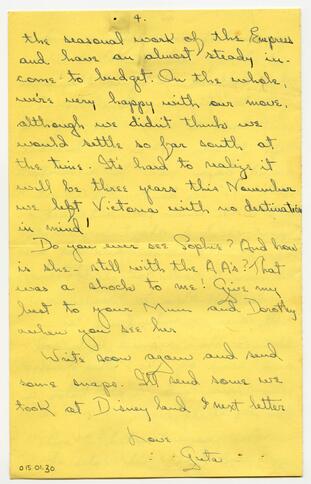 4.
the seasonal work of the Empress
and have an almost steady in-
come to budget. On the whole,
we're very happy with our move,
although we didn't think we
would settle so far south at
the time. It's hard to realize it
will be three years this November
we left Victoria with no destination
in mind!
Do you ever see Sophie? And how
is she - still with the AA's? That
was a shock to me! Give my
best to your Mum and Dorothy
when you see her
Write soon again and send
some snaps. I'll send some we
took at Disneyland I next letter
Love
015.01.30